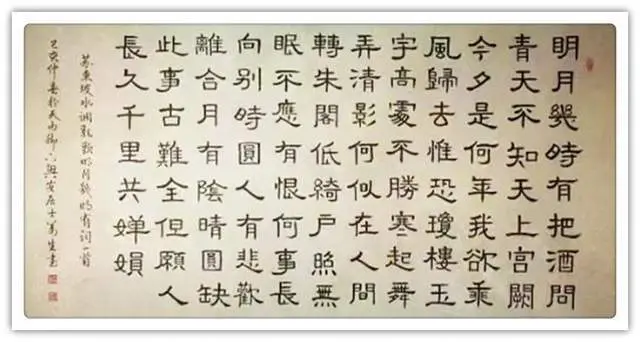 明月幾時有把酒問
青天不知天上宮闕
今夕是何年我欲乘
風歸去惟恐瓊樓玉
宇高處不勝寒起舞
弄清影何似在人間
轉朱閣低綺戶照無
眠不應有恨何事長
向別時圓人有悲歡
離合月有陰晴圓缺
此事古難全但願人
長久千里共嬋娟
蘇東坡水調歌歌明月幾時有詞一首
己亥仲春於天南居士書